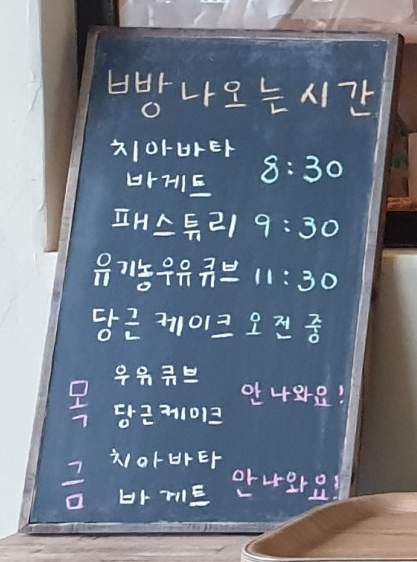 빵 나오는 시간
치아바타
바게트 8:30
패스튜리 9:30
유기농우유큐브 11:30
당근 케이크 오전 중
목 우유큐브
당근케이크 안 나와요!
금 치아바타
바게트 안 나와요!